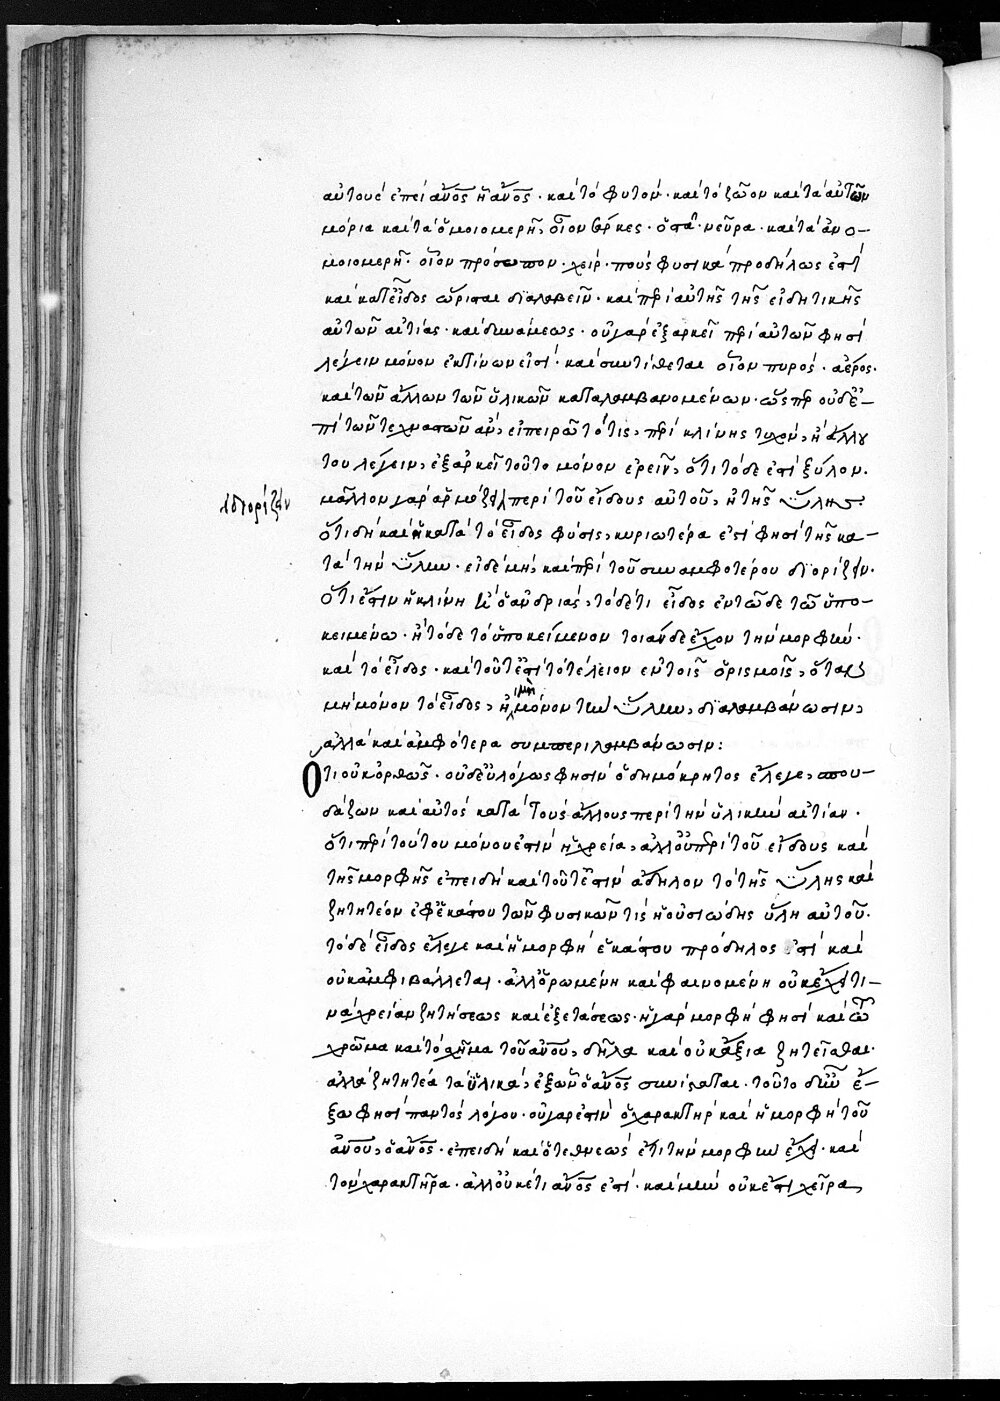 αὐτούς ἐπεὶ ἄνος ἢ ἄνος · καὶ τὸ φυτόν · καὶ τὸ ζῶον καὶ τὰ αὐτῶν
μόρια καὶ τὰ ὁμοιομερῆ, οἷον σάρκες · ὀστᾶ · νεῦρα · καὶ τὰ ἀνο-
μοιομερῆ · οἷον πρόσωπον · χείρ · πούς φυσικὰ προδήλως ἐστὶ
καὶ κατ' εἶδος ὥρισται διαλαβεῖν · καὶ περὶ αὐτῆς τῆς εἰδητικῆς
αὐτῶν αἰτίας · καὶ δυνάμεως · οὐ γὰρ ἐξαρκεῖ περὶ αὐτῶν φησὶ
λέγειν μόνον ἐκ τίνων εἰσί · καὶ συντίθεται οἷον πυρός · ἀέρος ·
καὶ τῶν ἄλλων τῶν ὑλικῶν καταλαμβανομένων · ὥσπερ οὐδὲ ἐ-
πὶ τῶν τεχναστῶν ἂν, εἰ πειρῶτό τις, περὶ κλίνης τυχόν, ἢ ἄλλου
του λέγειν, ἐξαρκεῖ τοῦτο μόνον ἐρεῖν, ὅτι τόδε ἐστὶ ξύλον ·
διορίζειν
μᾶλλον γὰρ ἁρμόζει περὶ τοῦ εἴδους αὐτοῦ, ἢ τῆς ὕλης
ὅτι δὴ καὶ ἡ κατὰ τὸ εἶδος φύσις, κυριωτέρα ἐστὶ φησὶ τῆς κα-
τὰ τὴν ὕλην · εἰ δὲ μή, καὶ περὶ τοῦ συναμφοτέρου διορίζειν ·
ὅτι ἐστὶν ἡ κλίνη καὶ ὁ ἀνδριάς, τόδε τι εἶδος ἐν τῶδε τῶ ὑπο-
κειμένω · ἢ τόδε τὸ ὑποκείμενον τοιάνδε ἔχον τὴν μορφὴν ·
καὶ τὸ εἶδος · καὶ τοῦτ' ἐστὶ τὸ τέλειον ἐν τοῖς ὁρισμοῖς, ὅταν
μὴ μόνον τὸ εἶδος, ἢ μὴ μόνον τὴν ὕλην, διαλαμβάνωσιν,
ἀλλὰ καὶ ἀμφότερα συμπεριλαμβάνωσιν :
Ὅτι οὐκ ὀρθῶς · οὐδ' εὐλόγως φησὶν ὁ δημόκρητος ἔλεγε, σπου-
δάζων καὶ αὐτὸς κατὰ τοὺς ἄλλους περὶ τὴν ὑλικὴν αἰτίαν ·
ὅτι περὶ τούτου μόνου ἐστὶν ἡ χρεία, ἀλλ' οὐ περὶ τοῦ εἴδους καὶ
τῆς μορφῆς ἐπειδὴ καὶ τοῦτ' ἔστιν ἄδηλον τὸ τῆς ὕλης καὶ
ζητητέον ἐφ' ἑκάστου τῶν φυσικῶν τίς ἡ οὐσιώδης ὕλη αὐτοῦ ·
τὸ δὲ εἶδος ἔλεγε καὶ ἡ μορφὴ ἑκάστου πρόδηλος ἐστὶ καὶ
οὐκ ἀμφιβάλλεται · ἀλλ' ὁρωμένη καὶ φαινομένη οὐκ ἔχει τι-
νὰ χρείαν ζητήσεως καὶ ἐξετάσεως · ἡ γὰρ μορφὴ φησὶ καὶ τὸ
χρῶμα καὶ τὸ σχῆμα τοῦ ἀνου, δῆλα καὶ οὐκ ἄξια ζητεῖσθαι ·
ἀλλὰ ζητητέα τὰ ὑλικά, ἐξ ὧν ὁ ἄνος συνίσταται · τοῦτο δ' οὖν ἔ-
ξω φησὶ παντὸς λόγου · οὐ γὰρ ἐστὶν ὁ χαρακτὴρ καὶ ἡ μορφὴ τοῦ
ἀνου, ὁ ἄνος · ἐπειδὴ καὶ ὁ τεθνεὼς ἔτι τὴν μορφὴν ἔχει · καὶ
τὸν χαρακτῆρα · ἀλλ' οὐκέτι ἄνος ἐστί · καὶ μὴν οὐκ ἔστι χεῖρα,